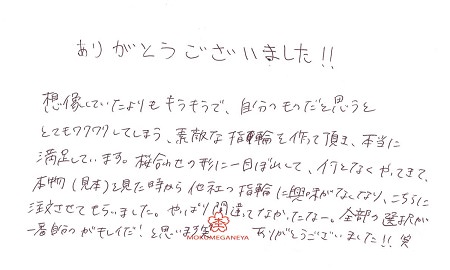 ありがとうございました!!
想像していたよりもキラキラで、自分のものだと思うと
とてもワクワクしてしまう、素敵な指輪を作って頂き、本当に
満足しています。桜合わせの形に一目ぼれして、
本物(見本)を見た時から他社の指輪に興味がなくなり、こちらに
注文させてもらいました。やっぱり間違ってなかったなー。全部の選択が
一番自分のがキレイだ!と思います笑 ありがとうございました!! 笑
MOKUMEGANEYA